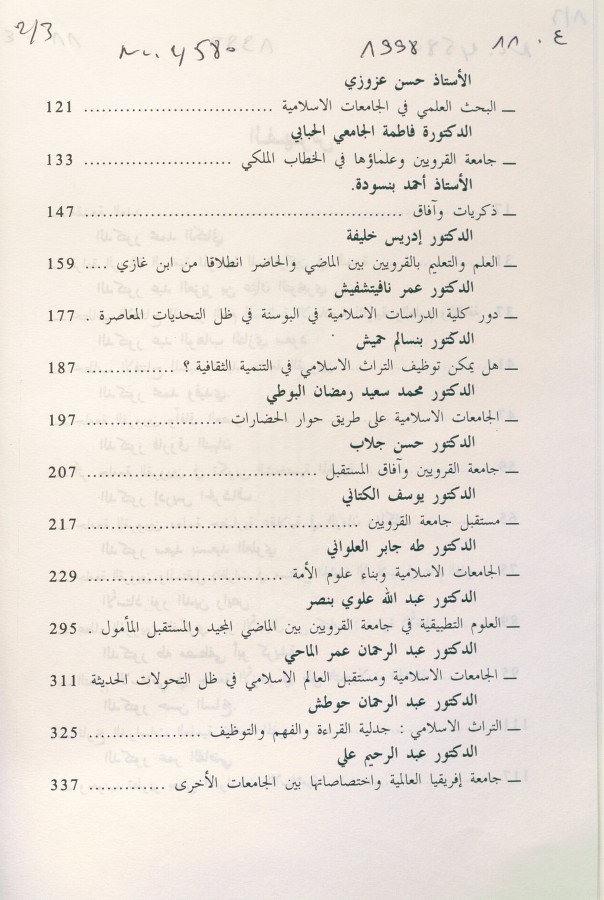 2/3
No. 4580
1998
11. ٤
الأستاذ حسن عزوزي
ـ البحث العلمي في الجامعات الاسلامية .............................. 121
الدكتورة فاطمة الجامعي الحبابي
ـ جامعة القرويين وعلماؤها في الخطاب الملكي ........................ 133
الأستاذ أحمد بنسودة.
ـ ذكريات وآفاق .................................................. 147
الدكتور إدريس خليفة
ـ العلم والتعليم بالقرويين بين الماضي والحاضر انطلاقا من ابن غازي .... 159
الدكتور عمر نافيتشفيش
ـ دور كلية الدراسات الاسلامية في البوسنة في ظل التحديات المعاصرة . 177
الدكتور بنسالم حميش
ـ هل يمكن توظيف التراث الاسلامي في التنمية الثقافية ؟ .............. 187
الدكتور محمد سعيد رمضان البوطي
ـ الجامعات الاسلامية على طريق حوار الحضارات ...................... 197
الدكتور حسن جلاب
ـ جامعة القرويين وآفاق المستقبل .................................... 207
الدكتور يوسف الكتاني
ـ مستقبل جامعة القرويين ........................................... 217
الدكتور طه جابر العلواني
ـ الجامعات الاسلامية وبناء علوم الأمة ............................... 229
الدكتور عبد الله علوي بنصر
ـ العلوم التطبيقية في جامعة القرويين بين الماضي المجيد والمستقبل المأمول . 295
الدكتور عبد الرحمان عمر الماحي
ـ الجامعات الاسلامية ومستقبل العالم الاسلامي في ظل التحولات الحديثة 311
الدكتور عبد الرحمان حوطش
ـ التراث الاسلامي : جدلية القراءة والفهم والتوظيف .................. 325
الدكتور عبد الرحيم علي
ـ جامعة إفريقيا العالمية واختصاصاتها بين الجامعات الأخرى ............. 337